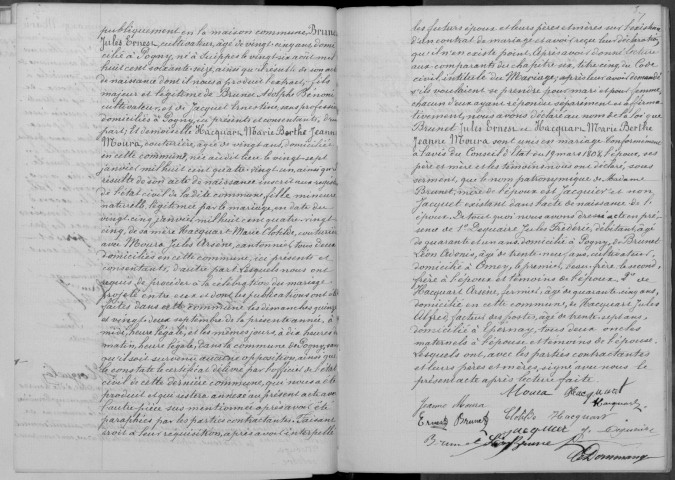 publiquement en la maison commune, Brunet
Jules Ernest, cultivateur, âgé de vingt cinq ans, domi
cilié à Pogny, né à Suippes le vingt un août mil
huit cent soixante seize, ainsi qu'il résulte de son acte
de naissance dont il nous a produit l'extrait, fils
majeur et légitime de Brunet Adolphe Benoni
cultivateur, et de Jacquet Ernestine, sans profession
domiciliés à Pogny, ici présents et consentants, d'une
part; Et demoiselle Hacquart Marie Berthe Jeanne
Moura, couturière, âgée de vingt ans, domiciliée
en cette commune, née au dit lieu le vingt sept
janvier mil huit cent quatre vingt un, ainsi qu'il
résulte de son acte de naissance inscrit aux registres
de l'état civil de la dite commune, fille mineure
naturelle légitimée par le mariage, en date du
vingt cinq janvier mil huit cent quatre vingt
cinq, de sa mère Hacquart Marie Clotilde, couturière
avec Moura Jules Arsène, cantonnier, tous deux
domiciliés en cette commune, ici présents et
consentants, d'autre part. Lesquels nous ont
requis de procéder à la célébration du mariage
projeté entre eux et dont les publications ont été
faites dans cette commune les dimanches quinze
et vingt deux septembre de la présente année, à
midi, heure légale, et les mêmes jours, à dix heures du
matin, heure légale, dans la commune de Pogny, sans
qu'il soit survenu aucune opposition, ainsi que
le constate le certificat délivré par l'officier de l'état
civil de cette dernière commune, que nous a été
produit et qui restera annexé au présent acte avec
l'autre pièce sus mentionnée après avoir été
paraphées par les parties contractantes. Faisant
droit à leur réquisition, après avoir interpellé
les futurs époux et leurs pères et mères sur l'existence
d'un contrat de mariage et avoir reçu leur déclaration
qu'il n'en existe point. Après avoir donné lecture
aux comparants du chapitre six, titre cinq du Code
civil, intitulé du Mariage; après leur avoir demandé
s'ils voulaient se prendre pour mari et pour femme,
chacun d'eux ayant répondu séparément et affirma
tivement, nous avons déclaré au nom de la loi que
Brunet Jules Ernest et Hacquart Marie Berthe
Jeanne Moura sont unis en mariage. Conformément
à l'avis du Conseil d'Etat du 19 mars 1808, l'épouse, ses
père et mère et les témoins ont déclaré, sous
serment, que le nom patronymique de Madame
Brunet, mère de l'époux est Jacquier et non
Jacquet existant dans l'acte de naissance de l'
époux. De tout quoi nous avons dressé acte en pré
sence de 1° Dequaire Jules Frédéric, débitant, âgé
de quarante et un ans, domicilié à Pogny, de Brunet
Léon Adonis, âgé de trente neuf ans, cultivateur,
domicilié à Omey, le premier, beau-frère le second,
frère à l'époux et témoins de l'époux 2° de
Hacquart Arsène, fermier, âgé de quarante cinq ans,
domicilié en cette commune, de Hacquart Jules
Alfred, facteur des postes, âgé de trente sept ans,
domicilié à Epernay, tous deux oncles
maternels à l'épouse et témoins de l'épouse.
Lesquels ont, avec les parties contractantes
et leurs pères et mères, signé avec nous le
présent acte après lecture faite.
Moura Hacquart
Jeanne Moura Hacquart
Ernest Brunet Clotilde Hacquart
Brunet Jacquier J. Dequaire